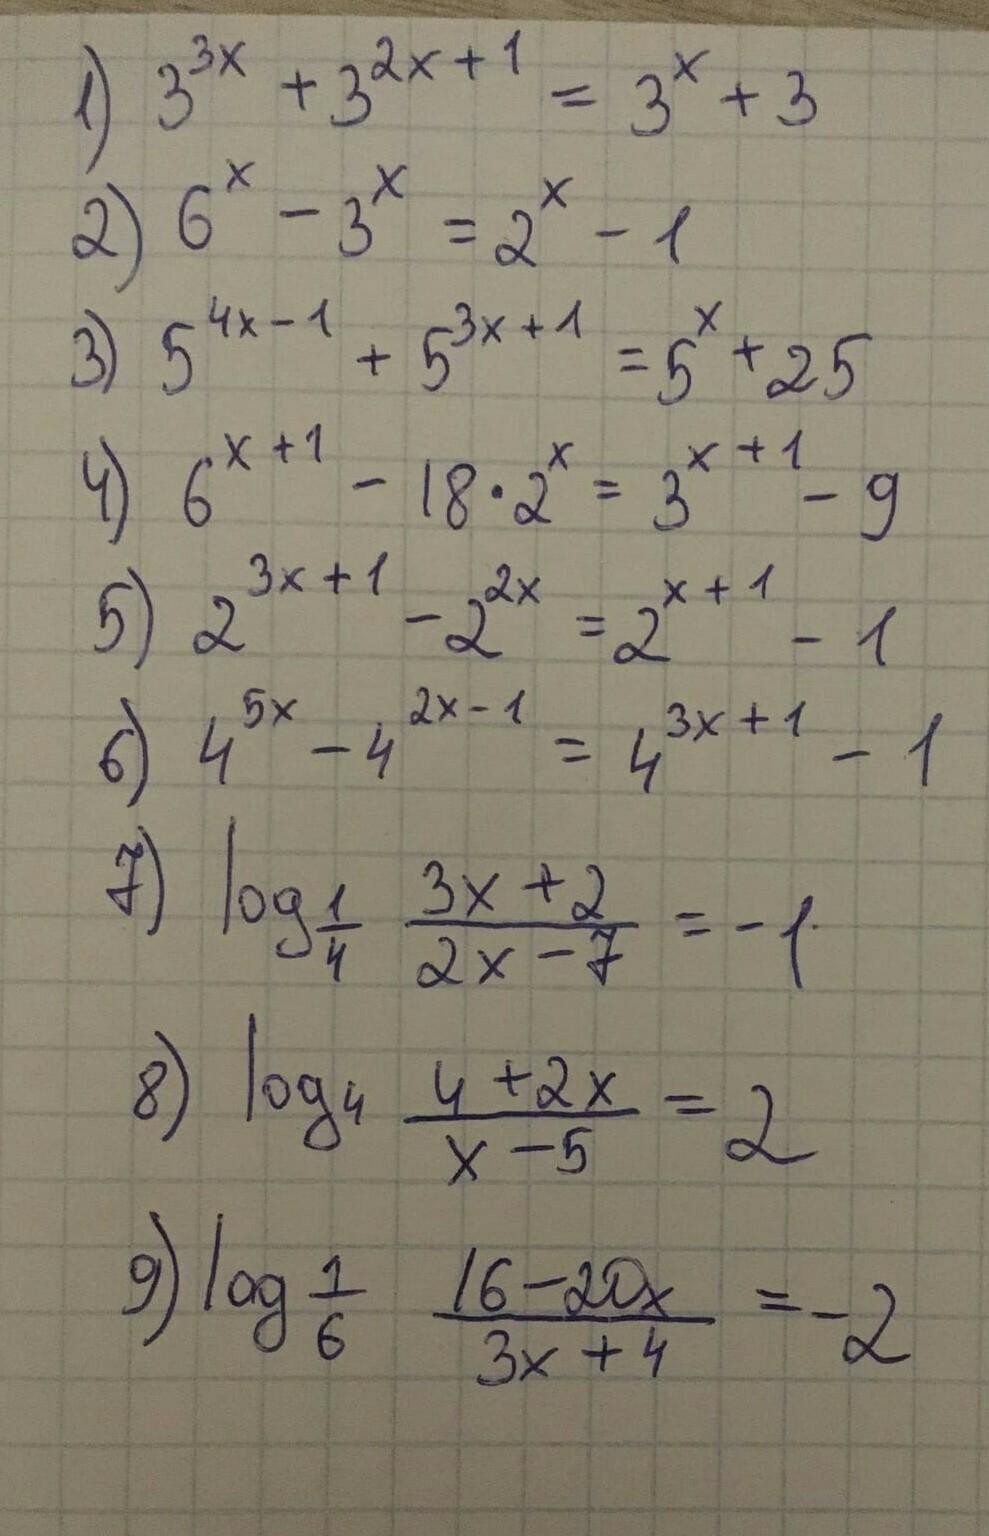 1) 3^{3x} + 3^{2x+1} = 3^x + 3
2) 6^x - 3^x = 2^x - 1
3) 5^{4x-1} + 5^{3x+1} = 5^x + 25
4) 6^{x+1} - 18·2^x = 3^{x+1} - 9
5) 2^{3x+1} - 2^{2x} = 2^{x+1} - 1
6) 4^{5x} - 4^{2x-1} = 4^{3x+1} - 1
7) log_{1/4} (3x+2)/(2x-7) = -1
8) log_4 (4+2x)/(x-5) = 2
9) log_{1/6} (16-20x)/(3x+4) = -2